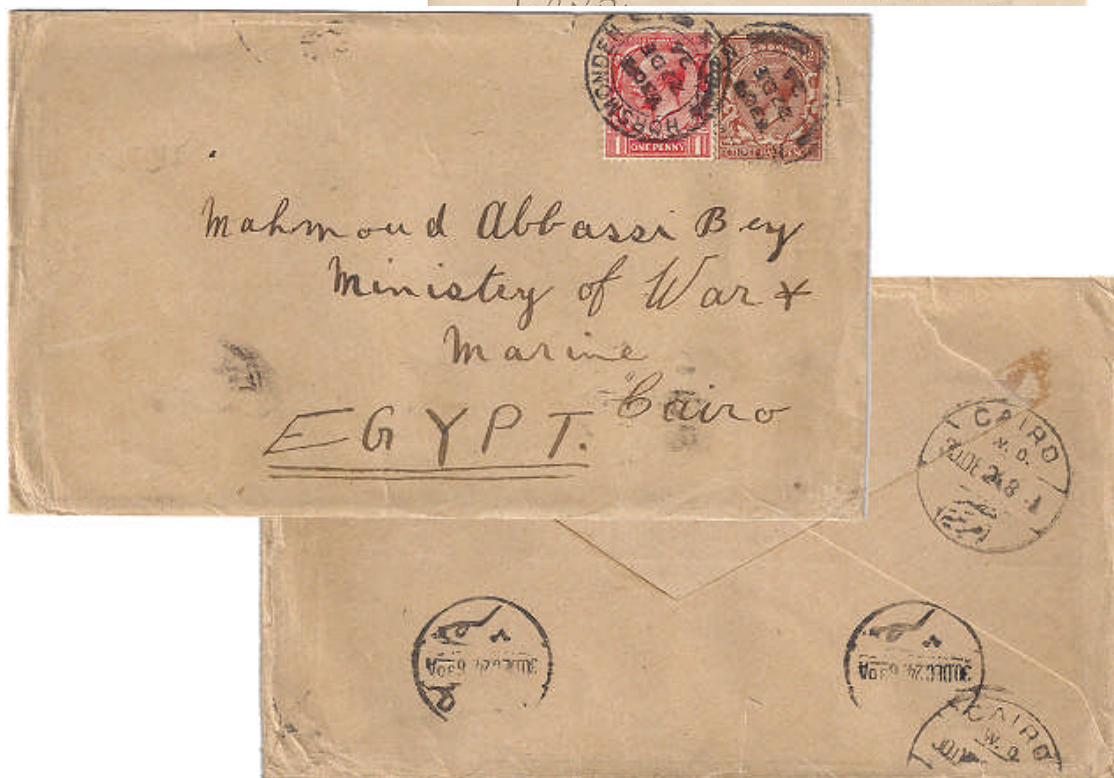 HORSMONDEN
ONE PENNY
Mahmoud Abbassi Bey
Ministry of War &
Marine
Cairo
EGYPT.
CAIRO
W. O.
30 DE 24 8
30 DEC 24. 6 30A
30 DEC 24. 6 30A
CAIRO
W. O.